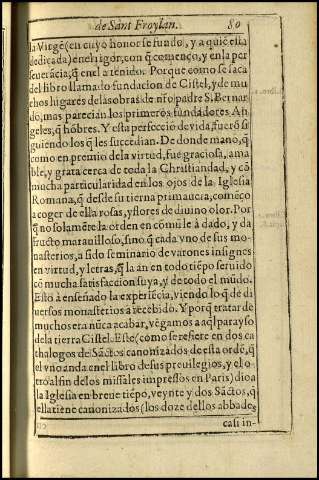 de Sant Froylan. 80
la Virgē (en cuyo honor se fundo, y a quiē esta
dedicada) en el rigor, con q̃ començo, y en la per
seuerācia, q̃ en el a tenido. Porque como se saca
del libro llamado fundacion de Cistel, y de mu
chos lugares de las obras de nr̃o padre S. Bernar
do, mas pareciā los primeros fundadores An
geles, q̃ hōbres. Y esta perfecciō de vida, fuerō si
guiendo los q̃ les succedian. De donde manò, q̃
como en premio de la virtud, fue graciosa, ama
ble, y grata cerca de toda la Christiandad, y cō
mucha particularidad en los ojos de la Iglesia
Romana, q̃ desde su tierna primauera, começo
a coger de ella rosas, y flores de diuino olor. Por
q̃ no solamēte la orden en comū le à dado, y da
fructo marauilloso, sino q̃ cada vno de sus mo-
nasterios, a sido seminario de varones insignes
en virtud, y letras, q̃ la an en todo tiēpo seruido
cō mucha satisfaccion suya, y de todo el mūdo.
Esto à enseñado la experiēcia, viendo lo q̃ de di
uersos monasterios a recebido. Y porq̃ tratar de
muchos era nūca acabar, vēgamos a aql̃ parayso
de la tierra Cistel. Este (como se refiere en dos ca
thalogos de Sāctos canonizados de esta ordē, q̃
el vno anda en el libro de sus preuilegios, y el o-
tro al fin de los missales impressos en Paris) dio a
la Iglesia en breue tiēpo, veynte y dos Sāctos, q̃
ella tiene canonizados (los doze dellos abbades
casi in-